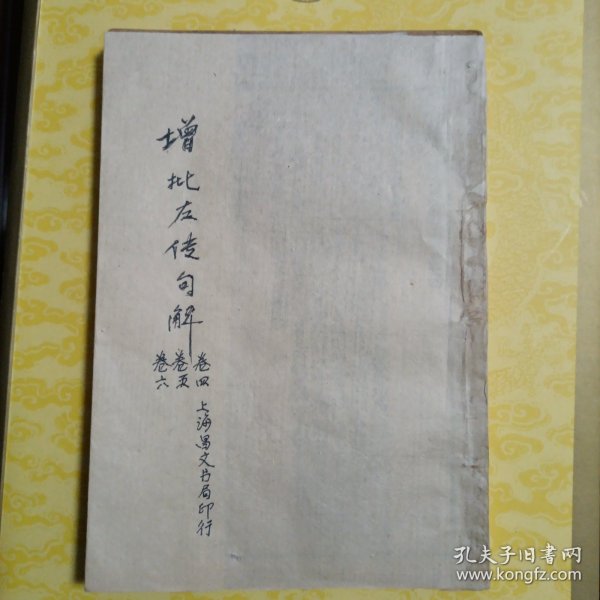 增批左传句解
卷四
卷五
卷六
上海昌文书局印行
孔夫子旧书网
www.kongfz.com